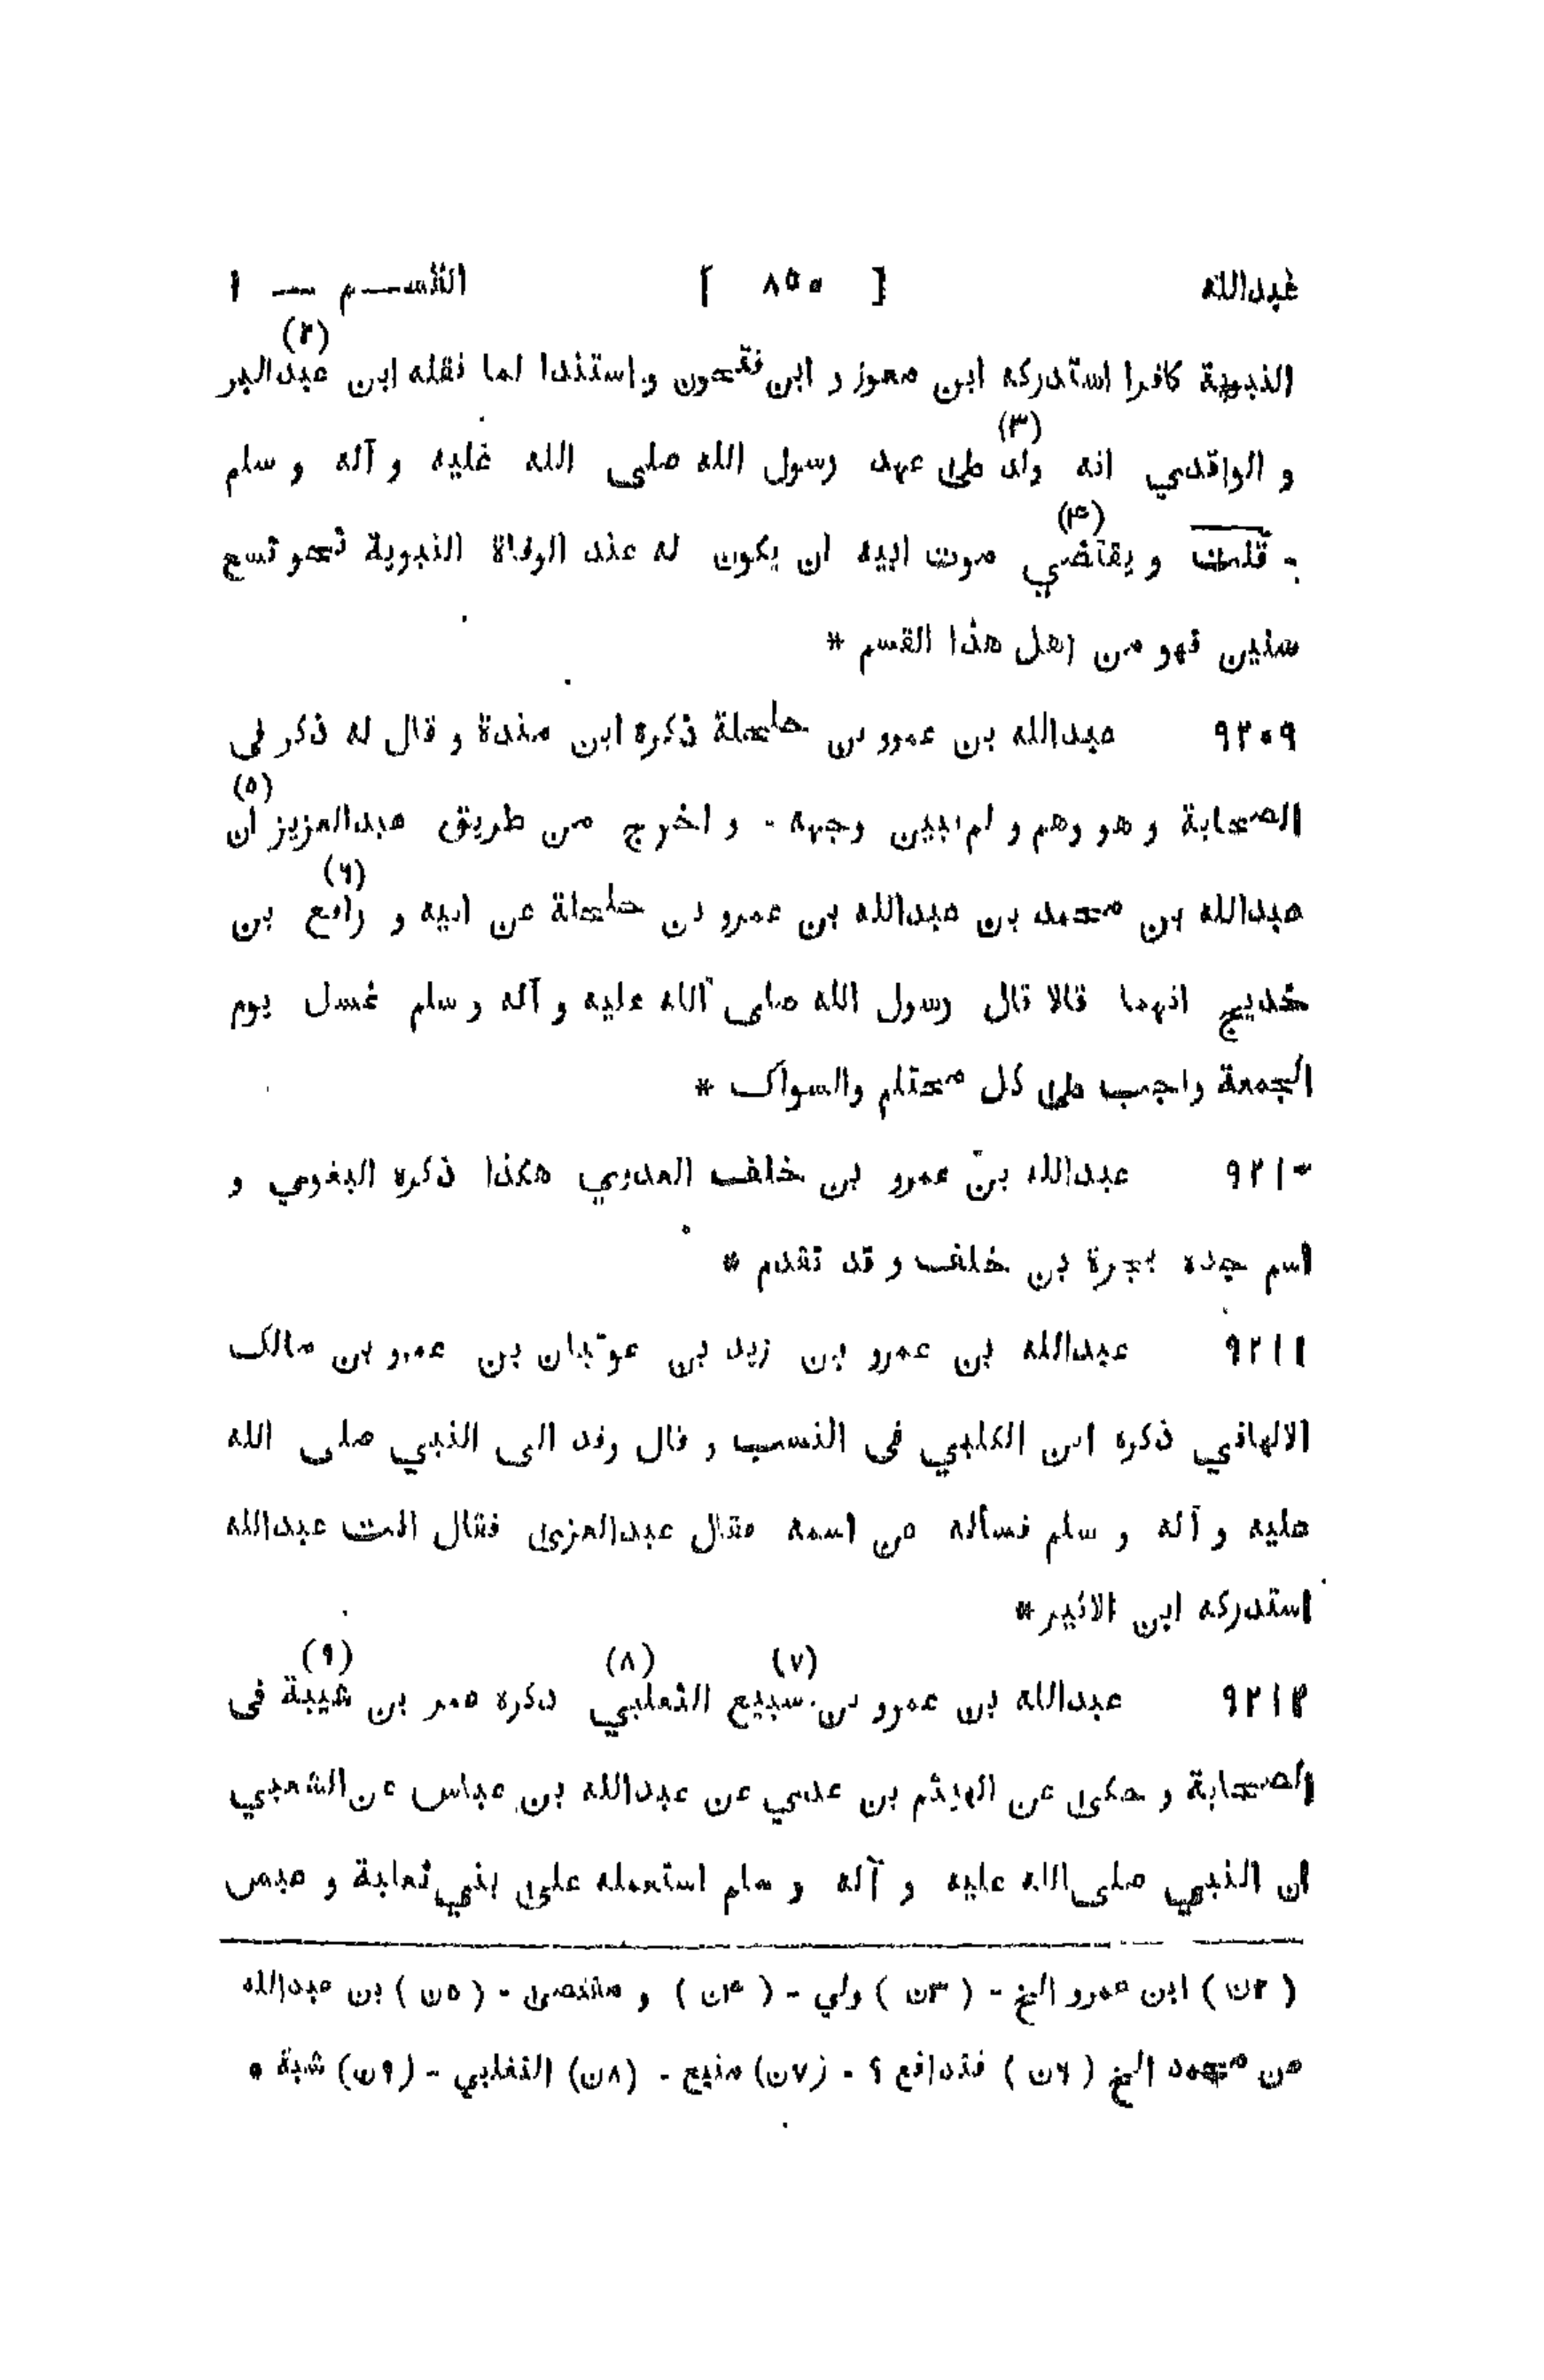 عبدالله [ ٨٥٠ ] القسم — ١
النبوية كافرا استدركه ابن معوز و ابن فتحون و استندا لما نقله ابن (٢) عبدالبر
و الواقدي انه ولد (٣) على عهد رسول الله صلى الله عليه و آله و سلم
- قلت و يقتضي (۴) موت ابيه ان يكون له عند الوفاة النبوية نحو تسع
سنين فهو من اهل هذا القسم *
٩٢٠٩ عبدالله بن عمرو بن حلحلة ذكره ابن مندة و قال له ذكر فى
الصحابة و هو وهم و لم يبين وجهه - و اخرج من طريق عبدالعزيز ان (٥)
عبدالله بن محمد بن عبدالله بن عمرو بن حلحلة عن ابيه و رافع (٦) بن
خديج انهما قالا قال رسول الله صلى الله عليه و آله و سلم غسل يوم
الجمعة واجب على كل محتلم والسواك *
٩٢١٠ عبدالله بن عمرو بن خلف العدوي هكذا ذكره البغوي و
اسم جده بجرة بن خلف و قد تقدم *
٩٢١١ عبدالله بن عمرو بن زيد بن عوتبان بن عمرو بن مالك
الالهاني ذكره ابن الكلبي فى النسب و قال وفد الى النبي صلى الله
عليه و آله و سلم فسأله من اسمه فقال عبدالعزى فقال انت عبدالله
استدركه ابن الاثير *
٩٢١٢ عبدالله بن عمرو بن سبيع (٧) الثعلبي (٨) ذكره عمر بن شيبة (٩) فى
الصحابة و حكى عن الهيثم بن عدي عن عبدالله بن عباس عن الشعبي
ان النبي صلى الله عليه و آله و سلم استعمله على بني ثعلبة و عبس
( ٢ن ) ابن عمرو الخ - ( ٣ن ) ولي - ( ۴ن ) و مقتضى - ( ٥ن ) بن عبدالله
من محمد الخ ( ٦ن ) فتدافع ؟ - (٧ن) منيع - (٨ن) التغلبي - (٩ن) شبة *